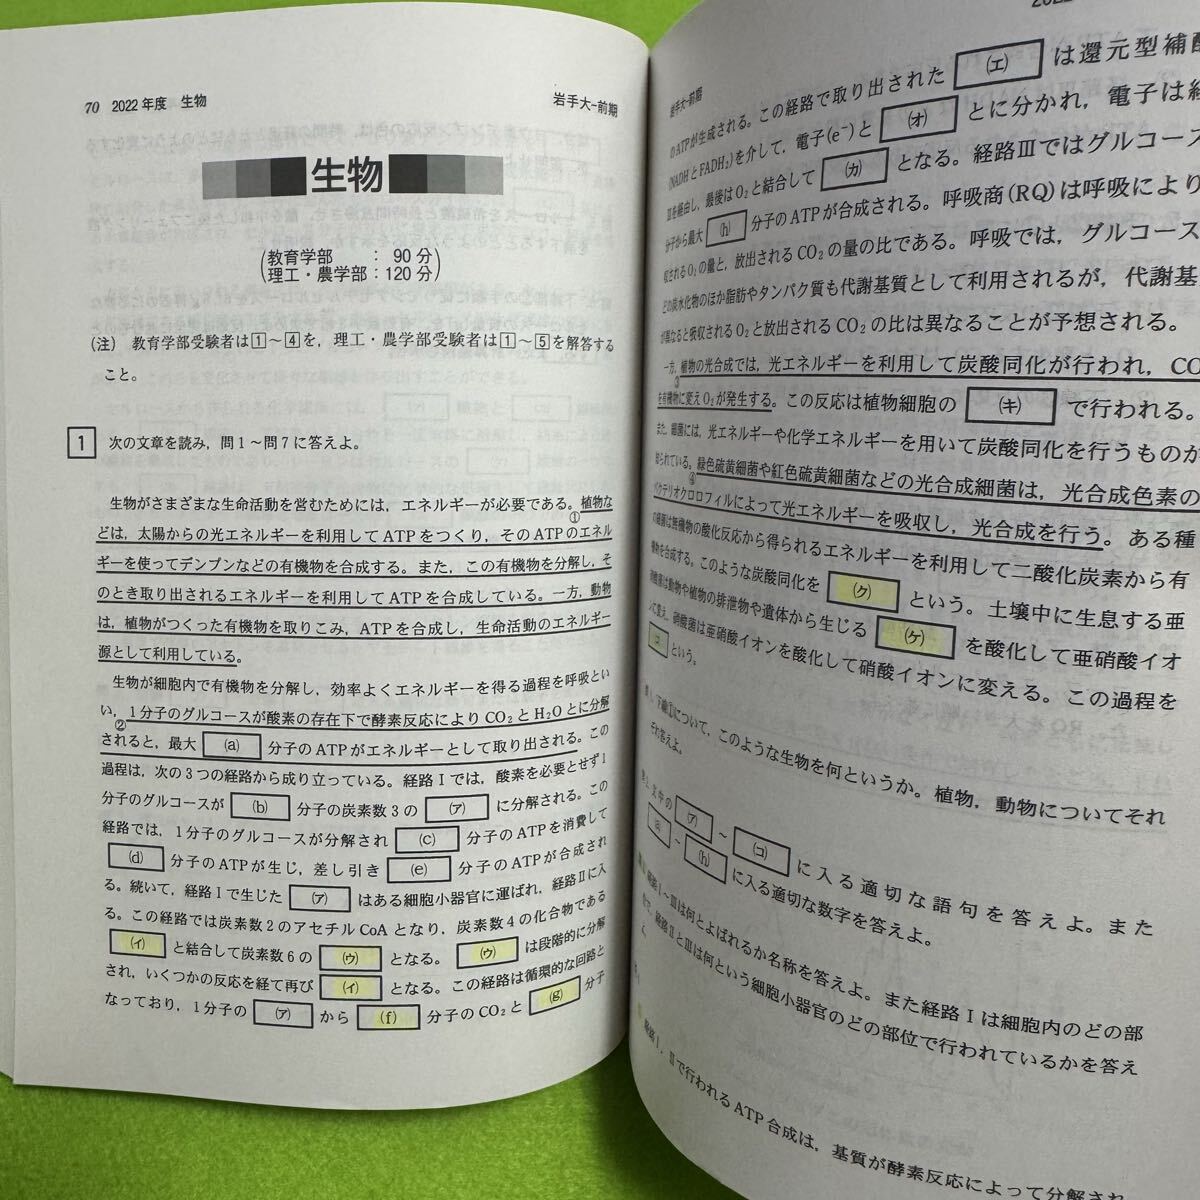 70 2022年度 生物
岩手大-前期
生物
教育学部 : 90分
理工・農学部:120分
(注) 教育学部受験者は1~4を,理工・農学部受験者は1~5を解答する
こと。
1 次の文章を読み,問1~問7に答えよ。
生物がさまざまな生命活動を営むためには,エネルギーが必要である。植物な
①
どは,太陽からの光エネルギーを利用してATPをつくり,そのATPのエネル
ギーを使ってデンプンなどの有機物を合成する。また,この有機物を分解し,そ
のとき取り出されるエネルギーを利用してATPを合成している。一方,動物
は,植物がつくった有機物を取りこみ,ATPを合成し,生命活動のエネルギー
源として利用している。
生物が細胞内で有機物を分解し,効率よくエネルギーを得る過程を呼吸とい
い,1分子のグルコースが酸素の存在下で酵素反応によりCO₂とH₂Oとに分解
②
されると,最大 (a) 分子のATPがエネルギーとして取り出される。この
過程は,次の3つの経路から成り立っている。経路Ⅰでは,酸素を必要とせず1
分子のグルコースが (b) 分子の炭素数3の (ア) に分解される。この
経路では,1分子のグルコースが分解され (c) 分子のATPを消費して
(d) 分子のATPが生じ,差し引き (e) 分子のATPが合成され
る。続いて,経路Ⅰで生じた (ア) はある細胞小器官に運ばれ,経路Ⅱに入
る。この経路では炭素数2のアセチルCoAとなり,炭素数4の化合物である
(イ) と結合して炭素数6の (ウ) となる。 (ウ) は段階的に分解
され,いくつかの反応を経て再び (イ) となる。この経路は循環的な回路と
なっており,1分子の (ア) から (f) 分子のCO₂と (g) 分子
岩手大-前期
のATPが生成される。この経路で取り出された (エ) は還元型補酵
(NADHとFADH₂)を介して,電子(e⁻)と (オ) とに分かれ,電子は経
Ⅲを経由し,最後はO₂と結合して (カ) となる。経路Ⅲではグルコース
分子から最大 (h) 分子のATPが合成される。呼吸商(RQ)は呼吸により
収されるO₂の量と,放出されるCO₂の量の比である。呼吸では,グルコース
どの炭水化物のほか脂肪やタンパク質も代謝基質として利用されるが,代謝基
が異なると吸収されるO₂と放出されるCO₂の比は異なることが予想される。
一方,植物の光合成では,光エネルギーを利用して炭酸同化が行われ,CO
③
を有機物に変えO₂が発生する。この反応は植物細胞の (キ) で行われる。
また,細菌には,光エネルギーや化学エネルギーを用いて炭酸同化を行うものが
知られている。緑色硫黄細菌や紅色硫黄細菌などの光合成細菌は,光合成色素の
④
バクテリオクロロフィルによって光エネルギーを吸収し,光合成を行う。ある種
の細菌は無機物の酸化反応から得られるエネルギーを利用して二酸化炭素から有
機物を合成する。このような炭酸同化を (ク) という。土壌中に生息する亜
硝酸菌は動物や植物の排泄物や遺体から生じる (ケ) を酸化して亜硝酸イオ
ンに変え,硝酸菌は亜硝酸イオンを酸化して硝酸イオンに変える。この過程を
コ という。
下線①について,このような生物を何というか。植物,動物についてそれ
ぞれ答えよ。
文中の (ア) ~ (コ) に入る適切な語句を答えよ。また
(a) ~ (h) に入る適切な数字を答えよ。
経路Ⅰ~Ⅲは何とよばれるか名称を答えよ。また経路Ⅰは細胞内のどの部
で,経路ⅡとⅢは何という細胞小器官のどの部位で行われているかを答え
経路Ⅰ,Ⅱで行われるATP合成は,基質が酵素反応によって分解され